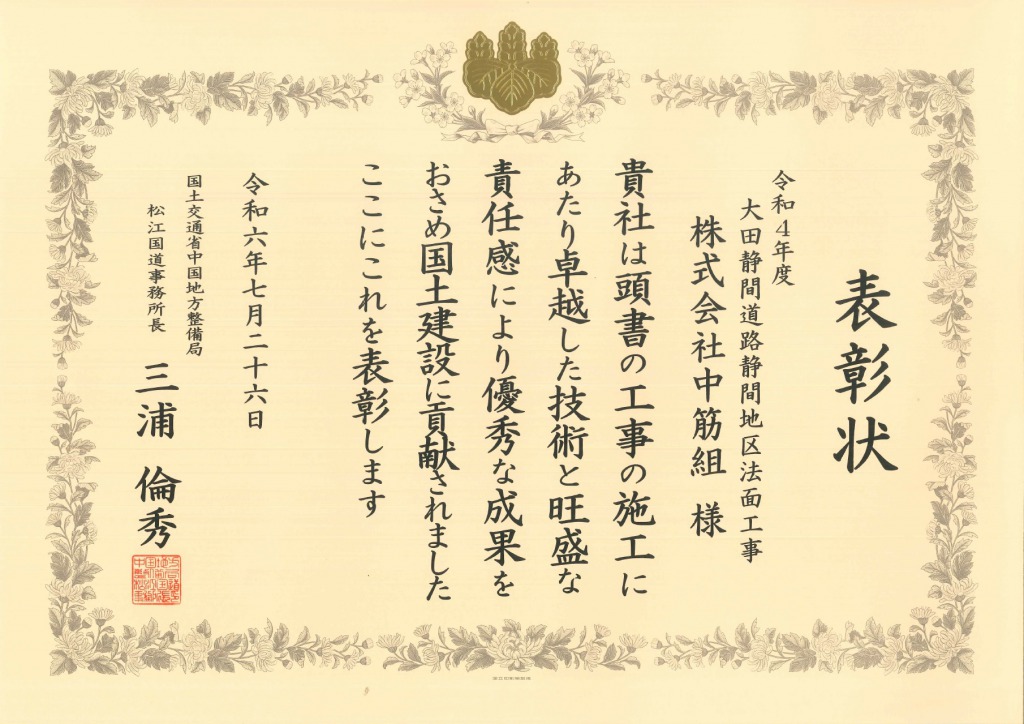 表彰状
令和4年度
大田静間道路静間地区法面工事
株式会社中筋組 様
貴社は頭書の工事の施工に
あたり卓越した技術と旺盛な
責任感により優秀な成果を
おさめ国土建設に貢献されました
ここにこれを表彰します
令和六年七月二十六日
国土交通省中国地方整備局
松江国道事務所長
三浦 倫秀